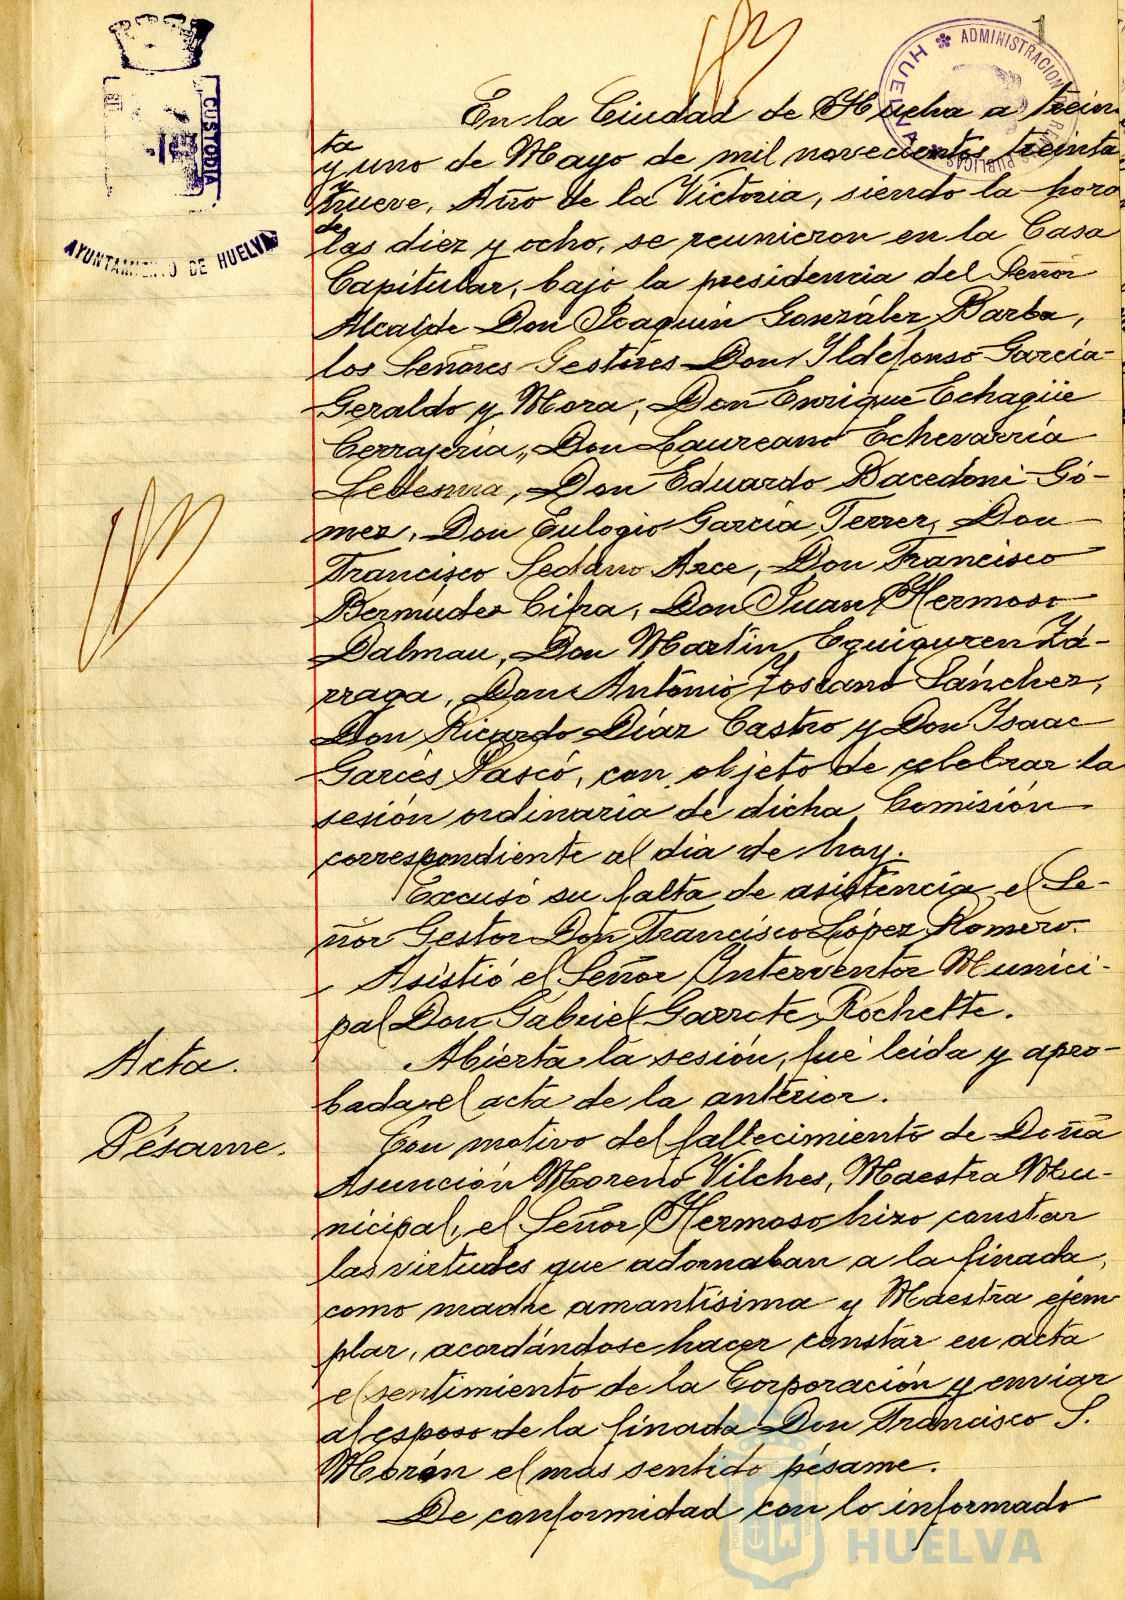 1
ADMINISTRACION DE RENTAS PUBLICAS
HUELVA
CUSTODIA
AYUNTAMIENTO DE HUELVA
En la Ciudad de Huelva a trein
ta
y uno de Mayo de mil novecientos treinta
y
nueve, Año de la Victoria, siendo la hora
de
las diez y ocho, se reunieron en la Casa
Capitular, bajo la presidencia del Señor
Alcalde Don Joaquin González Barba,
los Señores Gestores Don Ildefonso García
Geraldo y Mora, Don Enrique Echagüe
Cerrajería, Don Laureano Echevarría
Ledesma, Don Eduardo Bacedoni Gó-
mez, Don Eulogio García Ferrer, Don
Francisco Sedano Arce, Don Francisco
Bermúdez Cifra, Don Juan Hermoso
Dalmau, Don Martin Eguiguren Zá-
rraga, Don Antonio Toscano Sánchez,
Don Ricardo Díaz Castro y Don Isaac
Garcés Pascó, con objeto de celebrar la
sesión ordinaria de dicha Comisión
correspondiente al dia de hoy.
Excusó su falta de asistencia el Se-
ñor Gestor Don Francisco López Romero.
Asistió el Señor Interventor Munici-
pal Don Gabriel Garrote Rochette.
Acta.
Abierta la sesión, fué leida y apro-
bada el acta de la anterior.
Pésame.
Con motivo del fallecimiento de Doña
Asunción Moreno Vilches, Maestra Mu-
nicipal, el Señor Hermoso hizo constar
las virtudes que adornaban a la finada,
como madre amantísima y Maestra ejem
plar, acordándose hacer constar en acta
el sentimiento de la Corporación y enviar
al esposo de la finada Don Francisco S.
Morón el más sentido pésame.
De conformidad con lo informado
HUELVA